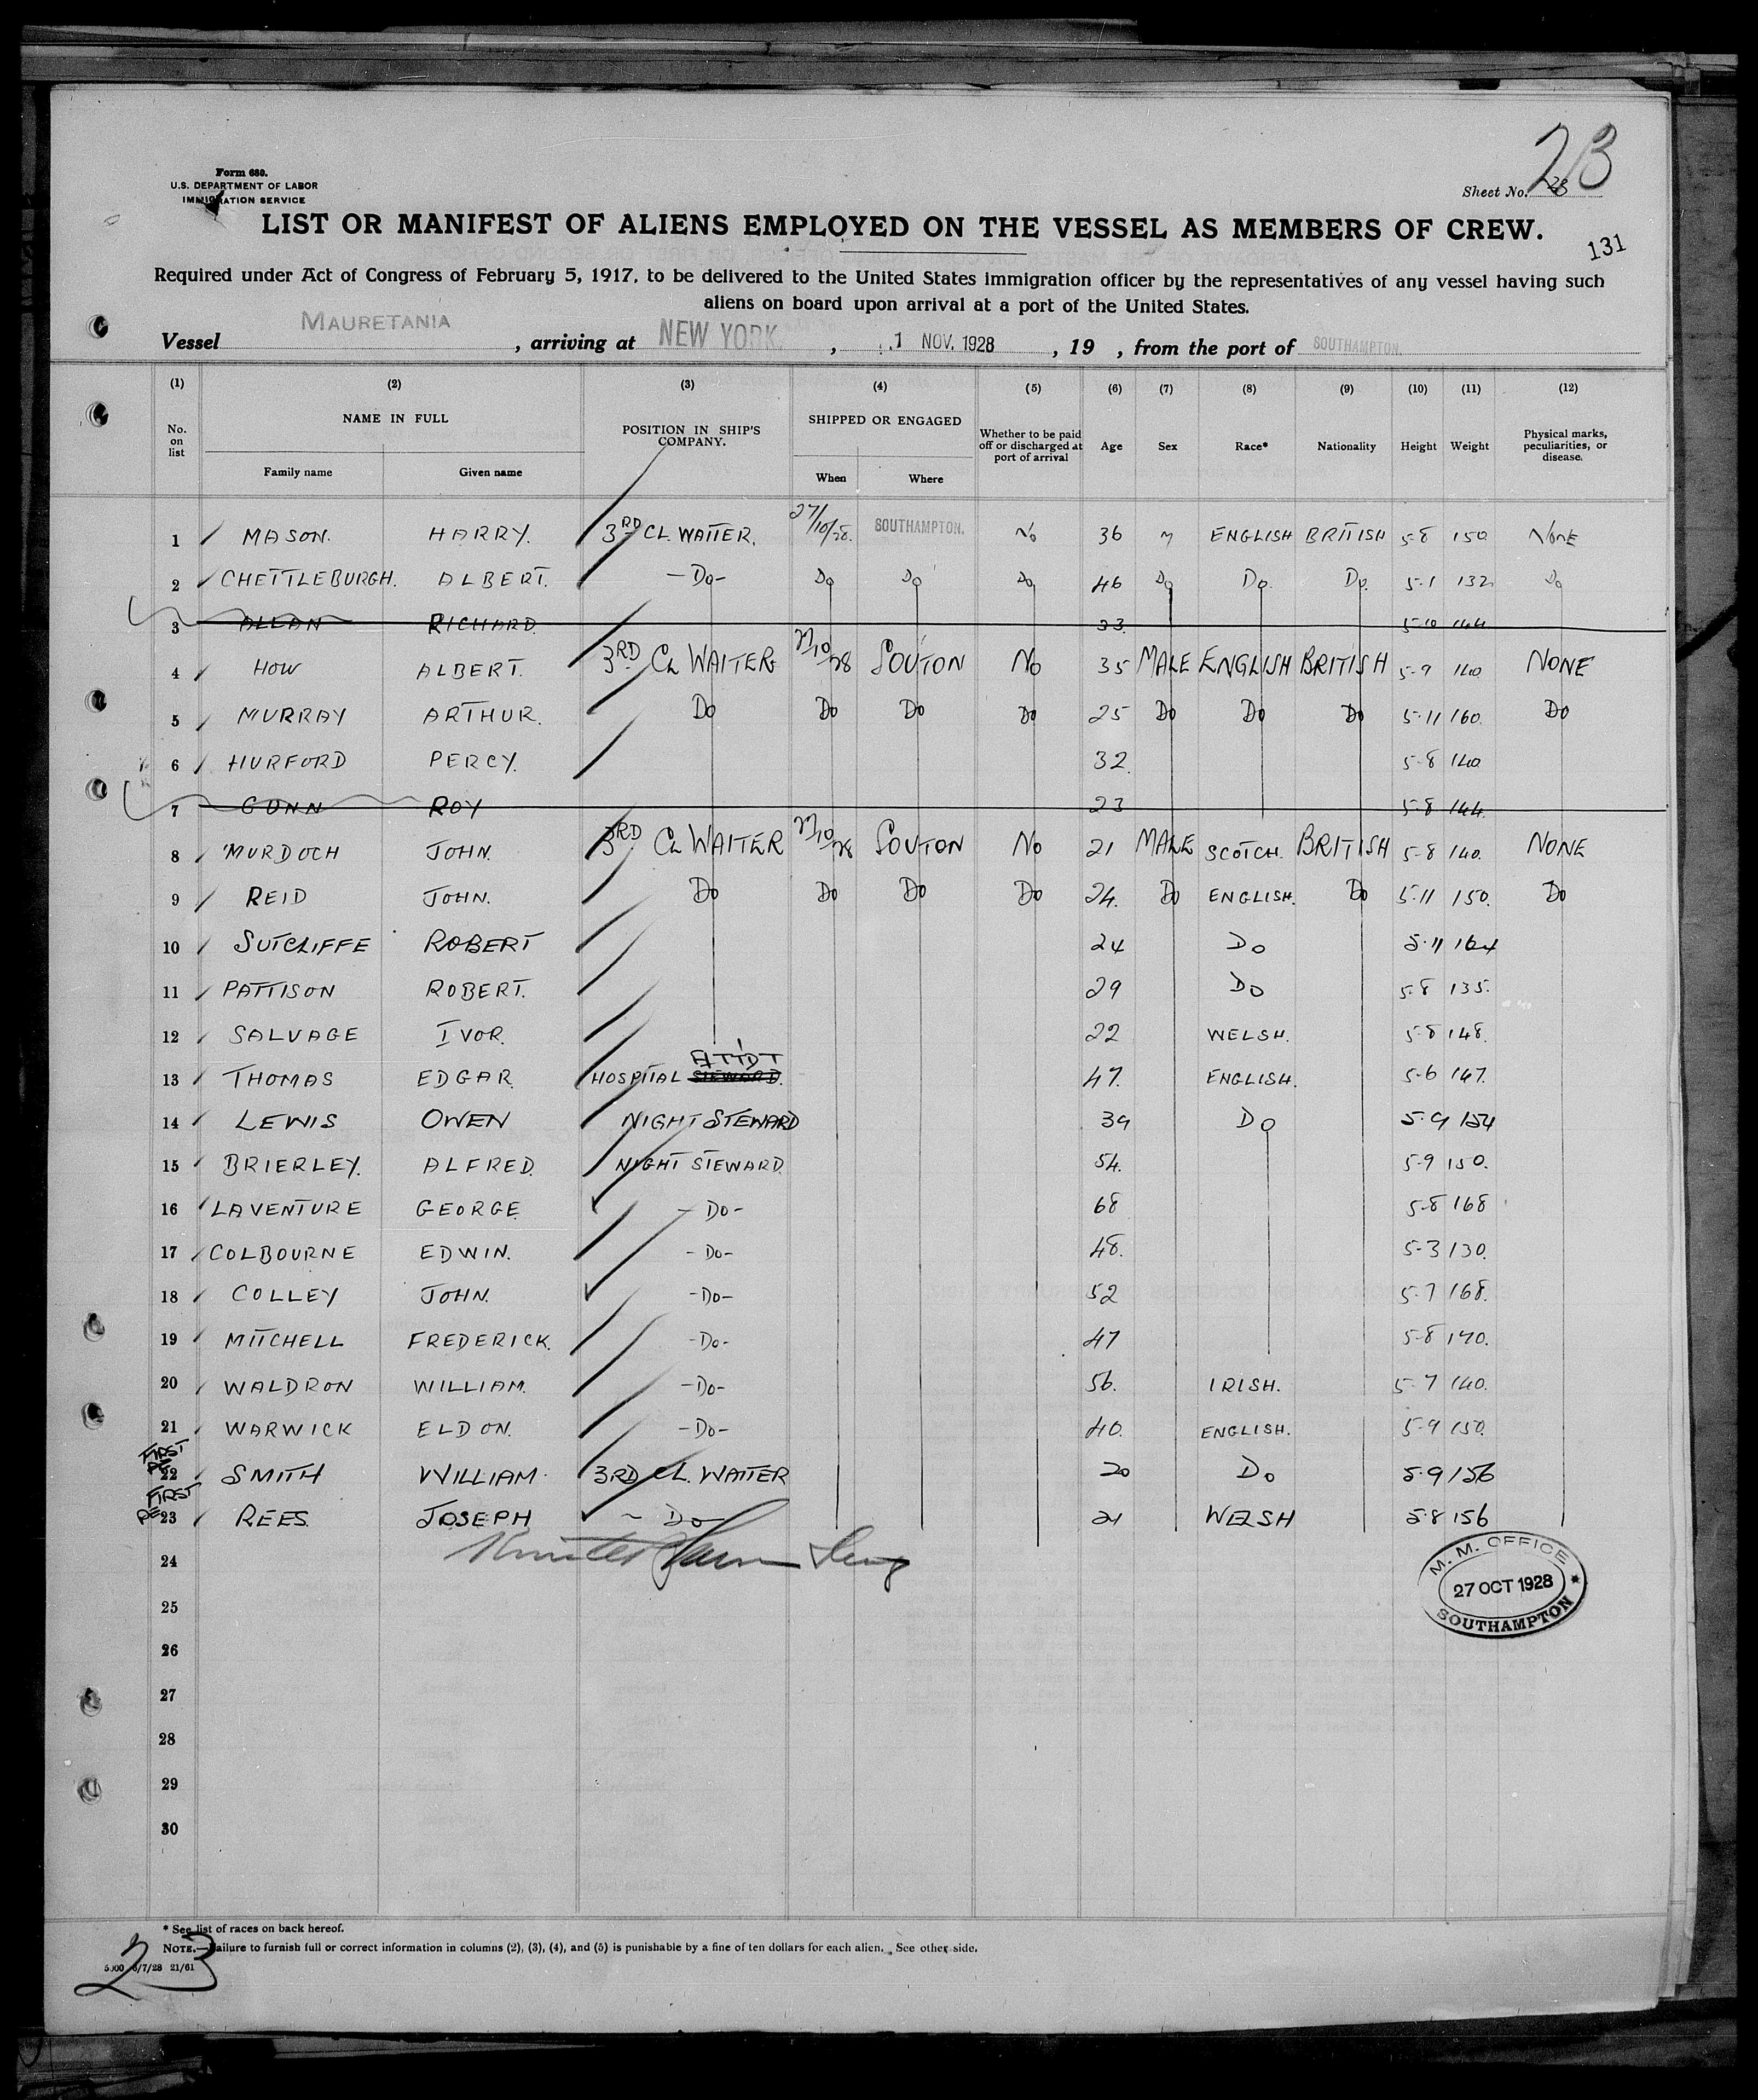 Form 680.
U.S. DEPARTMENT OF LABOR
IMMIGRATION SERVICE
23
Sheet No. 23
LIST OR MANIFEST OF ALIENS EMPLOYED ON THE VESSEL AS MEMBERS OF CREW.
131
Required under Act of Congress of February 5, 1917, to be delivered to the United States immigration officer by the representatives of any vessel having such
aliens on board upon arrival at a port of the United States.
Vessel MAURETANIA, arriving at NEW YORK, 1 NOV. 1928, 19 , from the port of SOUTHAMPTON.
(1) (2) (3) (4) (5) (6) (7) (8) (9) (10) (11) (12)
No. on list NAME IN FULL Family name Given name POSITION IN SHIP'S COMPANY. SHIPPED OR ENGAGED When Where Whether to be paid off or discharged at port of arrival Age Sex Race* Nationality Height Weight Physical marks, peculiarities, or disease.
1 MASON. HARRY. 3RD CL. WAITER. 27/10/28. SOUTHAMPTON. No 36 M ENGLISH BRITISH 5-8 150 NONE
2 CHETTLEBURGH. ALBERT. -Do- Do Do Do 46 Do Do. Do. 5-1 132 Do
3 ALLAN RICHARD. 33. 5-10 144
4 HOW ALBERT. 3RD CL WAITER 27/10/28 SOUTON No 35 MALE ENGLISH BRITISH 5-9 140 NONE
5 MURRAY ARTHUR. Do Do Do Do 25 Do Do Do 5-11 160. Do
6 HURFORD PERCY. 32. 5-8 140
7 GUNN ROY 23 5-8 144.
8 MURDOCH JOHN. 3RD CL WAITER 27/10/28 SOUTON No 21 MALE SCOTCH. BRITISH 5-8 140. NONE
9 REID JOHN. Do Do Do Do 24. Do ENGLISH. Do 5-11 150. Do
10 SUTCLIFFE ROBERT 24 Do 5-11 164
11 PATTISON ROBERT. 29 Do 5-8 135.
12 SALVAGE IVOR. 22 WELSH. 5-8 148.
13 THOMAS EDGAR. HOSPITAL STEWARD. ATTDT 47. ENGLISH. 5-6 147.
14 LEWIS OWEN NIGHT STEWARD 39 Do 5-9 154
15 BRIERLEY. ALFRED. NIGHT STEWARD. 54. 5-9 150.
16 LAVENTURE GEORGE. -Do- 68 5-8 168
17 COLBOURNE EDWIN. -Do- 48. 5-3 130.
18 COLLEY JOHN. -Do- 52 5-7 168.
19 MITCHELL FREDERICK. -Do- 47 5-8 170.
20 WALDRON WILLIAM. -Do- 56. IRISH. 5-7 140.
21 WARWICK ELDON. -Do- 40. ENGLISH. 5-9 150.
FIRST
22 SMITH WILLIAM. 3RD CL. WAITER 20 Do 5-9 156
FIRST
23 REES. JOSEPH -Do- 21 WELSH 5-8 156
24
25
26
27
28
29
30
M. M. OFFICE
27 OCT 1928
SOUTHAMPTON
* See list of races on back hereof.
NOTE.—Failure to furnish full or correct information in columns (2), (3), (4), and (5) is punishable by a fine of ten dollars for each alien. See other side.
5000 6/7/28 21/61
23